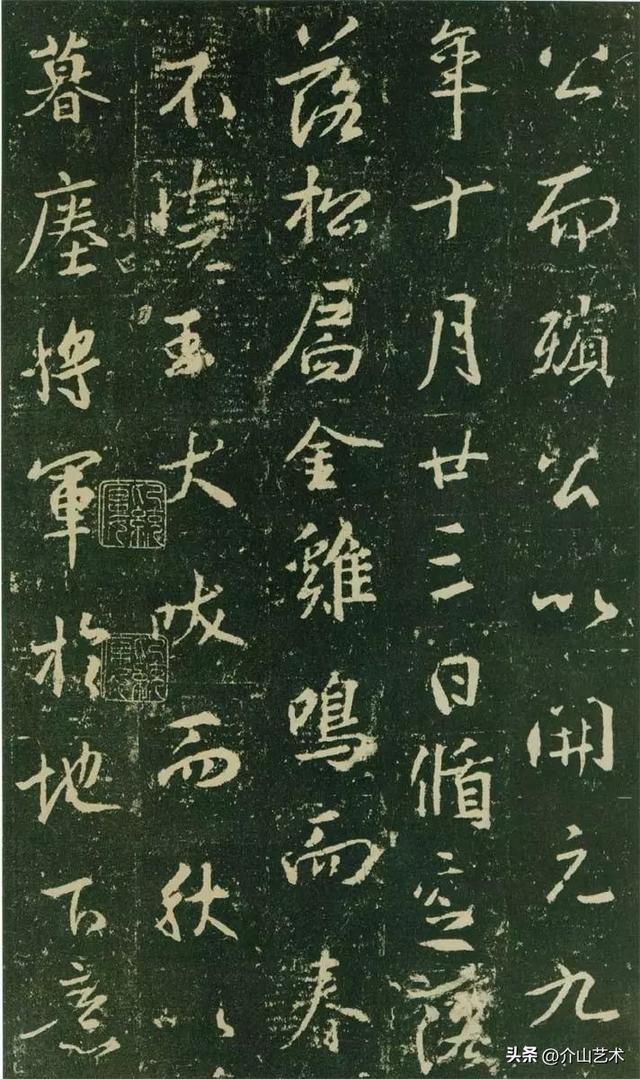 公而殯公以開元九
年十月廿三日循空落
落松扃金雞鳴而春
不曉玉犬吠而秋以
暮塟將軍於地下意
头条 @介山艺术